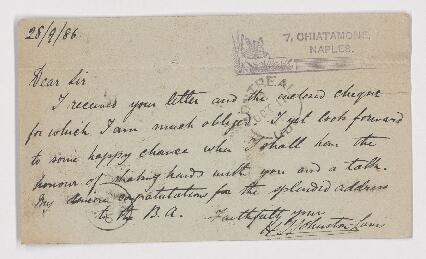 28/9/86
7, CHIATAMONE,
NAPLES.
MONTREAL
Dear Sir
I received your letter and the inclosed cheque
for which I am much obliged. I yet look forward
to some happy chance when I shall have the
honour of shaking hands with you and a talk.
My sincere congratulations for the splendid address
to the B.A. Faithfully yours
H. J. Johnston Lavis